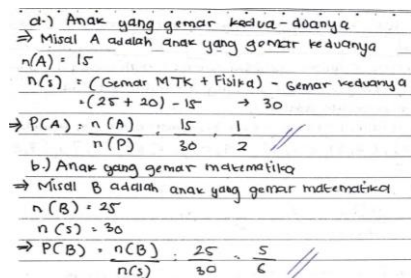 a.) Anak yang gemar kedua-duanya
⇒ Misal A adalah anak yang gemar keduanya
n(A) = 15
n(s) = (Gemar MTK + Fisika) - Gemar keduanya
= (25 + 20) - 15 → 30
⇒ P(A) = n(A)/n(P) = 15/30 = 1/2 //
b.) Anak yang gemar matematika
⇒ Misal B adalah anak yang gemar matematika
n(B) = 25
n(s) = 30
⇒ P(B) = n(B)/n(s) = 25/30 = 5/6 //